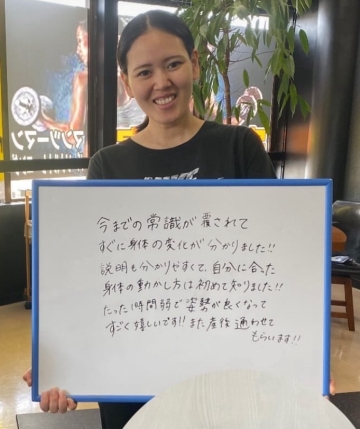 マンツーマン
今までの常識が覆されて
すぐに身体の変化が分かりました!!
説明も分かりやすくて、自分に合った
身体の動かし方は初めて知りました!!
たった1時間弱で姿勢が良くなって
すごく嬉しいです!! また産後通わせて
もらいます!!